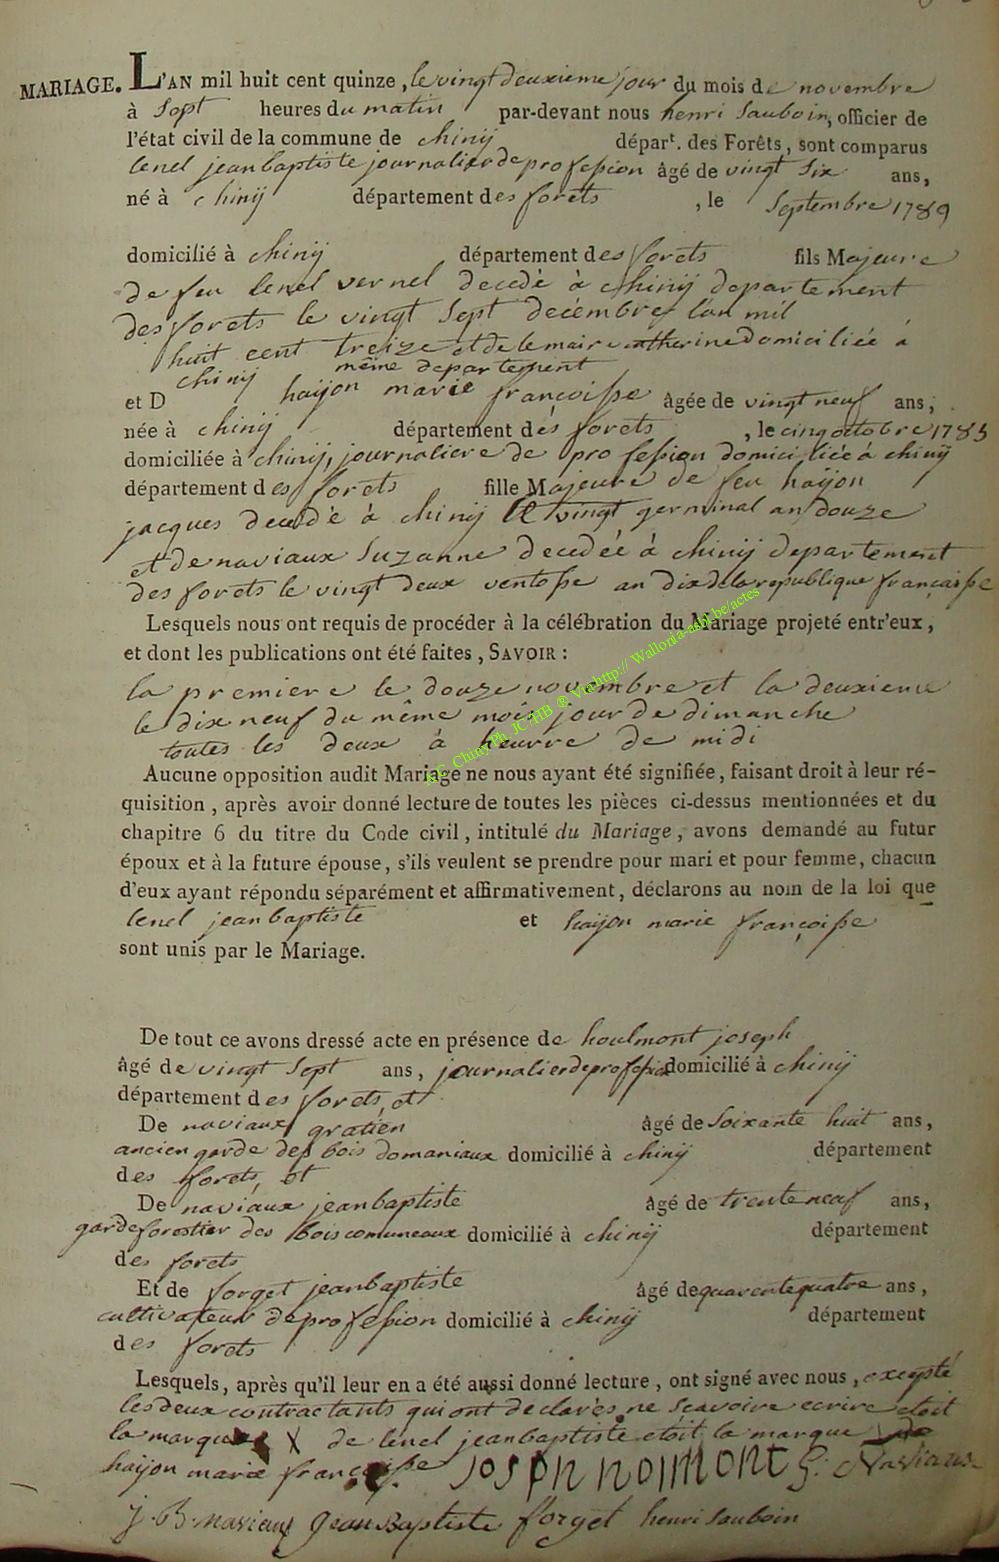 MARIAGE. L'AN mil huit cent quinze, le vingt deuxieme jour du mois de novembre
à Sept heures du matin par-devant nous henri Sauboin, officier de
l'état civil de la commune de chinij départ. des Forêts, sont comparus
lenel jeanbaptiste journalier de profession âgé de vingt six ans,
né à chinij département des forets, le Septembre 1789
domicilié à chinij département des forets fils Majeure
de feu lenel vernel decedè à chinij departement
des forets le vingt Sept decembre l'an mil
huit cent treize et de lemaire catherine domiciliée a
chinij même departement
et D haijon marie françoisse âgée de vingt neuf ans,
née à chinij département des forets, le cinq octobre 1785
domiciliée à chinij, journaliere de profession domiciliée à chinij
département des forets fille Majeure de feu haijon
jacques decedè à chinij le vingt germinal an douze
et de naviaux Suzanne decedée à chinij departement
des forets le vingt deux ventosse an dix de la republique françaisse
Lesquels nous ont requis de procéder à la célébration du Mariage projeté entr'eux,
et dont les publications ont été faites, SAVOIR :
la premiere le douze novembre et la deuxieme
le dix neuf du même mois jour de dimanche
toutes les deux à heurre de midi
AC_ChinyPh_JC/HB ® Via http://Wallonia-asbl.be/actes
Aucune opposition audit Mariage ne nous ayant été signifiée, faisant droit à leur ré-
quisition, après avoir donné lecture de toutes les pièces ci-dessus mentionnées et du
chapitre 6 du titre du Code civil, intitulé du Mariage, avons demandé au futur
époux et à la future épouse, s'ils veulent se prendre pour mari et pour femme, chacun
d'eux ayant répondu séparément et affirmativement, déclarons au nom de la loi que
lenel jeanbaptiste et haijon marie françoisse
sont unis par le Mariage.
De tout ce avons dressé acte en présence de houlmont joseph
âgé de vingt Sept ans, journalier de profession domicilié à chinij
département des forets, et
De naviaux gratien âgé de Soixante huit ans,
ancien garde des bois domaniaux domicilié à chinij département
des forets, et
De naviaux jeanbaptiste âgé de trente neuf ans,
garde forestier des bois comuneaux domicilié à chinij département
des forets
Et de forget jeanbaptiste âgé de quarente quatre ans,
cultivateur de profession domicilié à chinij département
des forets
Lesquels, après qu'il leur en a été aussi donné lecture, ont signé avec nous, excepté
les deux contractants qui ont declarès ne scavoire ecrire etoit
la marque X de lenel jeanbaptiste etoit la marque de
haijon marie françoisse Joseph noimont G. Naviaux
J. B. naviaux Jean Baptiste forget henri Sauboin